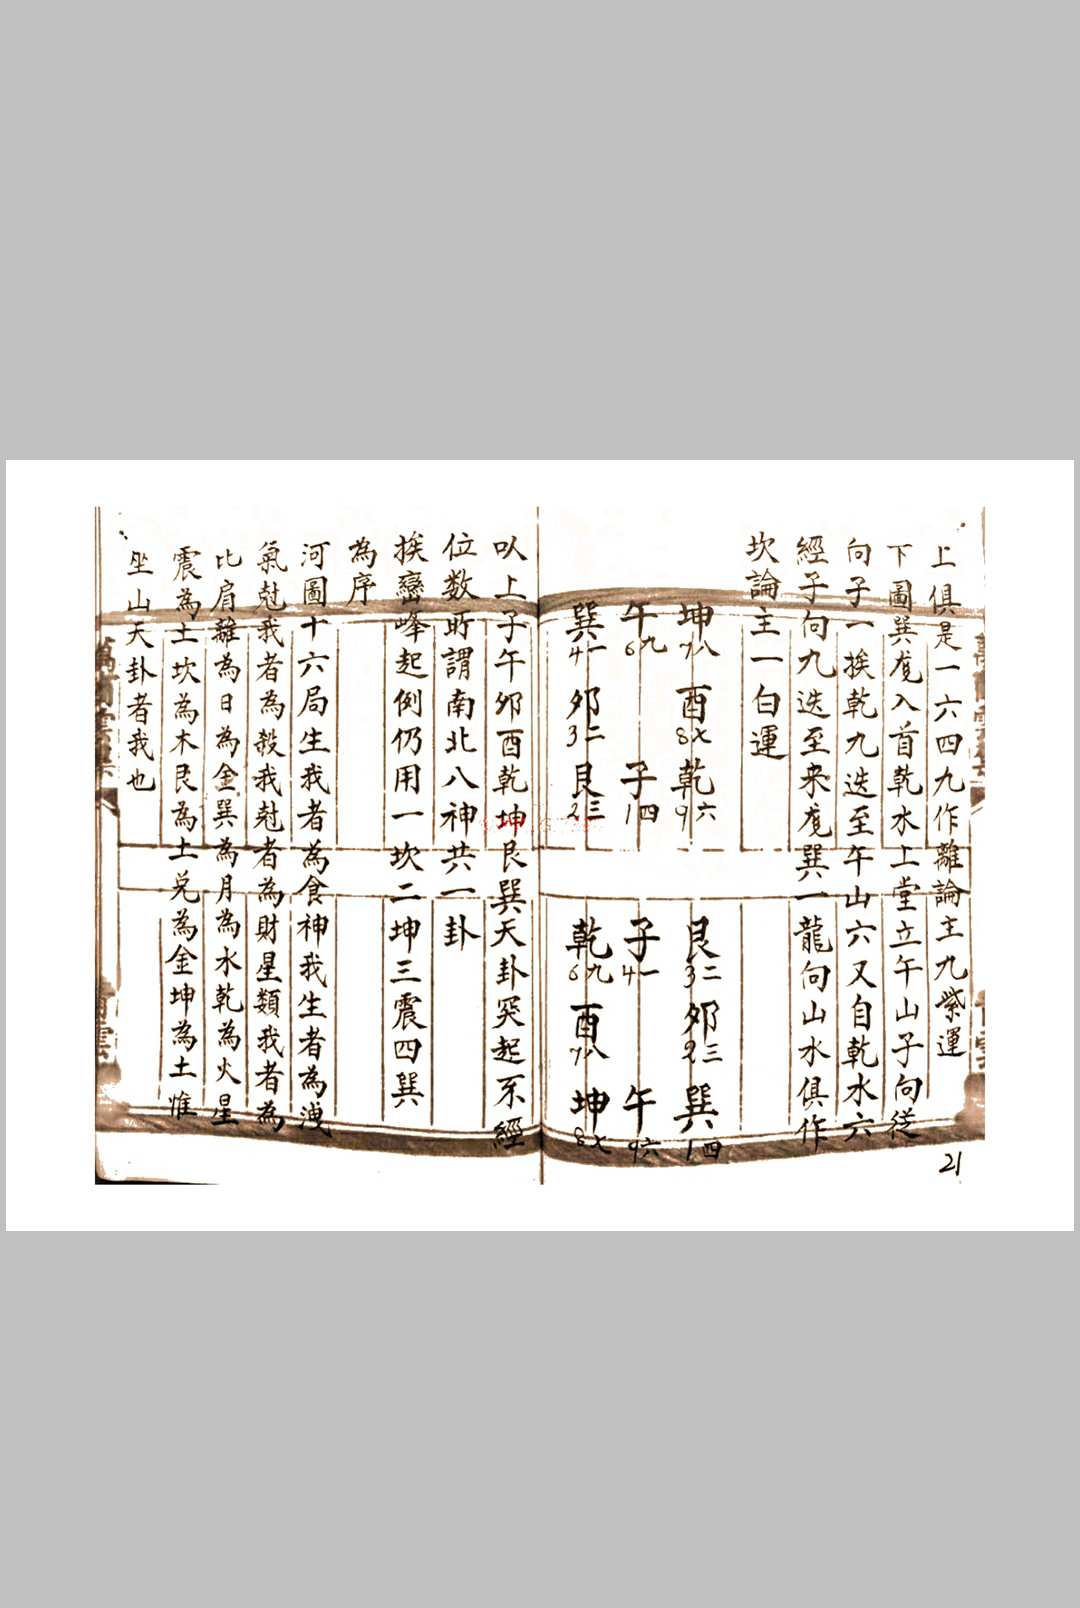 上俱是一六四九作離論主九紫運
下圖巽龙入首乾水上堂立午山子向從
向子一挨乾九迭至午山六又自乾水六
經子向九迭至來龙巽一龍向山水俱作
坎論主一白運
坤 酉 乾
7八 8七 9六
午 子
6九 1四
巽 夘 艮
4一 3二 2三
艮 夘 巽
3二 2三 1四
子 午
4一 9六
乾 酉 坤
6九 7八 8七
以上子午夘酉乾坤艮巽天卦突起不經
位数所謂南北八神共一卦
挨巒峰起例仍用一坎二坤三震四巽
為序
河圖十六局生我者為食神我生者為洩
氣尅我者為殺我尅者為財星類我者為
比肩離為日為金巽為月為水乾為火星
震為土坎為木艮為土兑為金坤為土惟
坐山天卦者我也
21